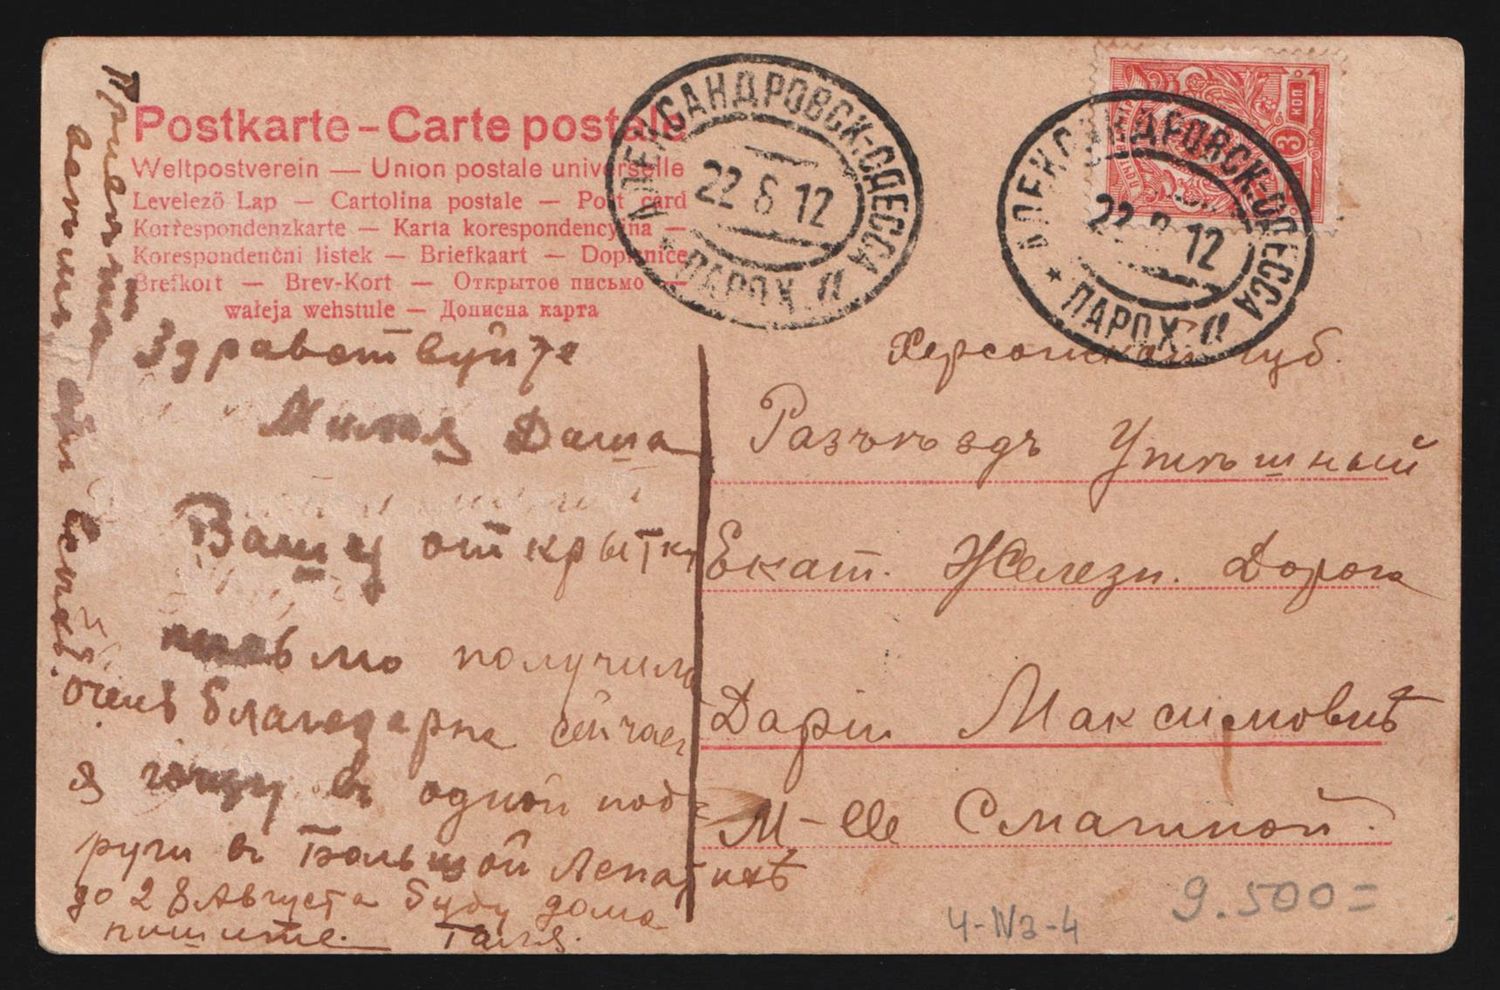 Postkarte – Carte postale
Weltpostverein — Union postale universelle
Levelező Lap — Cartolina postale — Post card
Korrespondenzkarte — Karta korespondencyjna —
Korespondenční listek — Briefkaart — Dopisnice
Brefkort — Brev-Kort — Открытое письмо —
wałeja wehstule — Дописна карта
АЛЕКСАНДРОВСК-ОДЕССА
22 8 12
* ПАРОХ.
АЛЕКСАНДРОВСК-ОДЕССА
22 8 12
* ПАРОХ.
3 КОП
Здравствуйте
Милая Даша
Вашу открытку
письмо получила
очень благодарна сейчас
я гощу в одной под-
руги в Большой Лепатихѣ
до 28 Августа буду дома
пишите. Галя.
Привет
Херсонская губ.
Разъѣздъ Утѣшный
Екат. Железн. Дорога
Дарiи Максимовнѣ
М-lle Смагиной.
9.500=